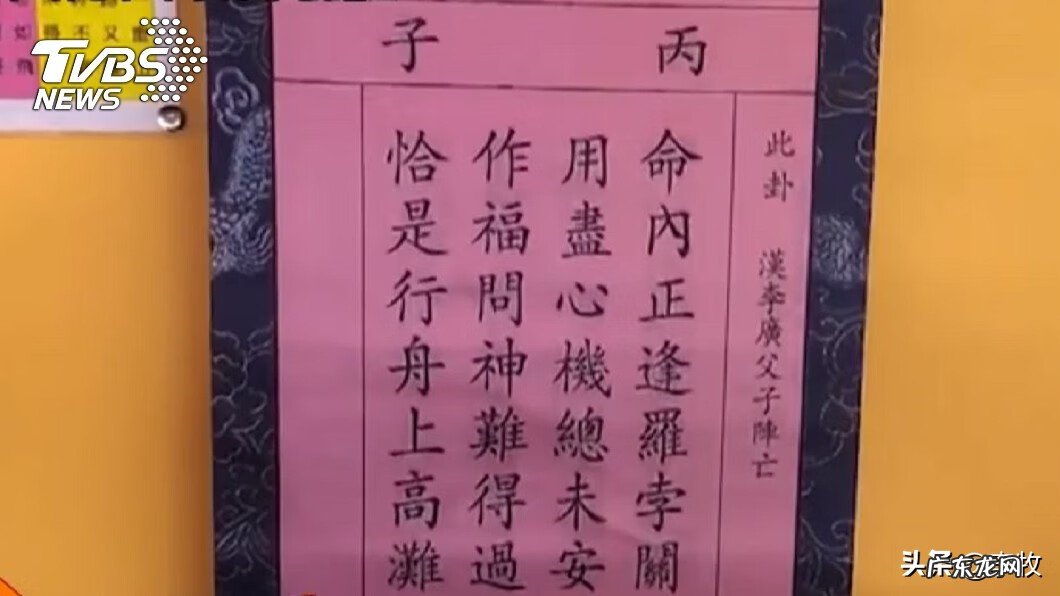 丙子
此卦 漢李廣父子陣亡
命內正逢羅孛關
用盡心機總未安
作福問神難得過
恰是行舟上高灘
TVBS
NEWS
如飛不又
飛
头条
东龙网
牧